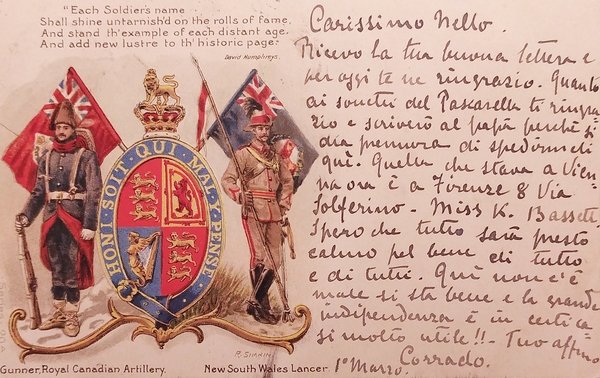 "Each Soldier's name
Shall shine untarnish'd on the rolls of fame,
And stand th' example of each distant age,
And add new lustre to th' historic page."
David Humphreys.
HONI · SOIT · QUI · MAL · Y · PENSE
R. SIMKIN
Gunner, Royal Canadian Artillery.
New South Wales Lancer.
Carissimo Nello.
Ricevo la tua buona lettera e
per oggi te ne ringrazio. Quanto
ai sonetti del Pascarella ti ringra
zio e scriverò al papà perchè si
dia premura di spedirmeli
qui. Quella che stava a Vien=
na ora è a Firenze 8 Via
Solferino - Miss K. Bassett.
Spero che tutto sarà presto
calmo pel bene di tutto
e di tutti. Qui non c'è
male si sta bene e la grande
indipendenza è in
si molto utile!! - Tuo affmo
Corrado.
1° Marzo.